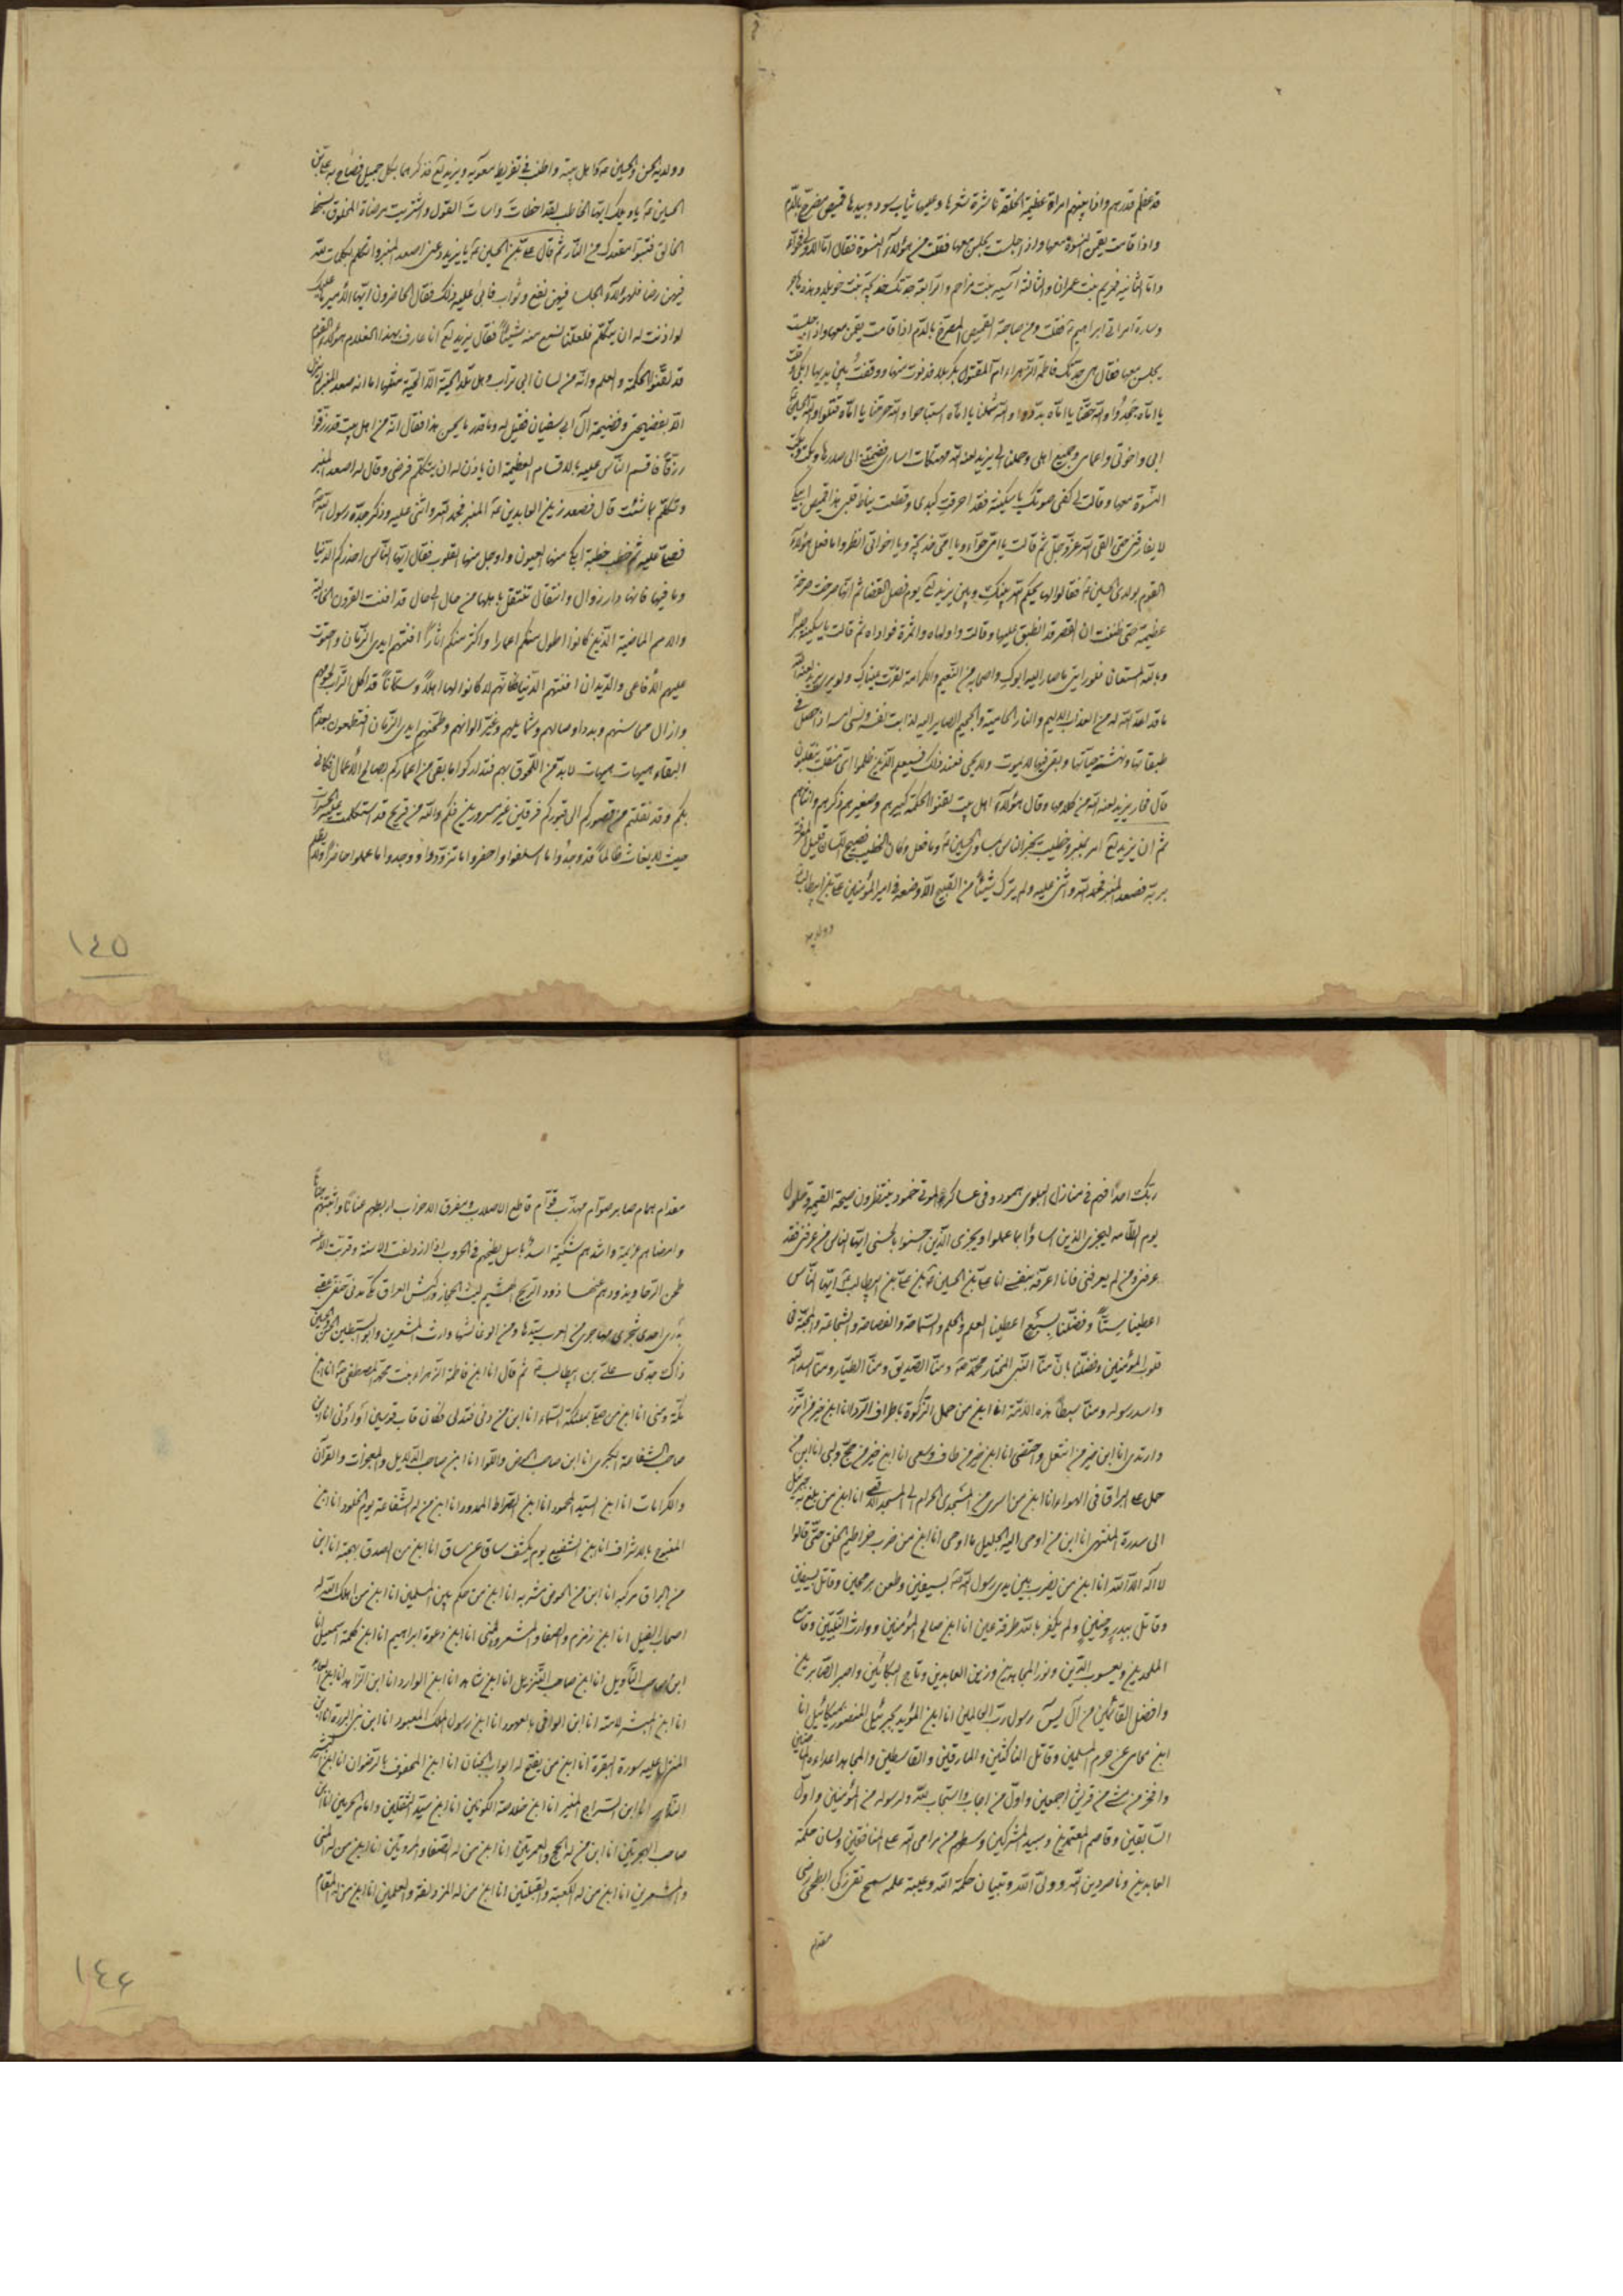 قد عظم قدرهم واذا بينهم امراة عظيمة الخلقة ناشرة شعرها وعليها ثياب سود وبيدها قميص مضرج بالدم
واذا قامت يقمن النسوة معها واذا جلست يجلسن معها فقلت من هؤلاء النسوة فقال اما الاولى حواء
واما الثانية مريم بنت عمران والثالثة آسية بنت مزاحم والرابعة جدتك خديجة بنت خويلد وهذه هاجر
وسارة امراة ابراهيم فقلت ومن صاحبة القميص المضرج بالدم اذا قامت يقمن معها واذا جلست
يجلسن معها فقال هي جدتك فاطمة الزهراء ام المقتول بكربلا فدنوت منها ووقفت بين يديها ابكي وقلت
يا اماه جحدوا والله حقنا يا اماه بددوا والله شملنا يا اماه استباحوا والله حرمنا يا اماه قتلوا والله الحسين
ابي واخوتي واعمامي وجميع اهلي وحملنا الى يزيد لعنه الله مهتكات اسارى فضمتني الى صدرها وبكت وبكت
النسوة معها وقالت لي كفي صوتك يا سكينة فقد احرقت كبدي وقطعت نياط قلبي هذا قميص ابيك
لا يفارقني حتى القى الله عز وجل ثم قالت يا امي حواء ويا امي خديجة ويا اخواتي انظروا ما فعل هؤلاء
القوم بولدي الحسين فقالوا لها يحكم الله بينك وبين يزيد يوم فصل القضا ثم انها صرخت صرخة
عظيمة حتى ظننت ان القصر قد انطبق عليها وقالت واولداه واثمرة فواداه ثم قالت يا سكينة صبرا
وبالله المستعان فلو رايتي ما صار اليه ابوك واصحابه من النعيم والكرامة لقرت عيناك ولو يرى يزيد لعنه الله
ما قد اعد الله له من العذاب الاليم والنار الحامية والجحيم الصاير اليه لذابت نفسه ونسى اسمه اذا حصل في
طبقاتها ونهشته حياتها وبقى فيها لا يموت ولا يحيى فعند ذلك فسيعلم الذين ظلموا اى منقلب ينقلبون
قال فحار يزيد لعنه الله من كلامها وقال هؤلاء اهل بيت يلقنوا الحكمة كبيرهم وصغيرهم ذكرهم وانثاهم
ثم ان يزيد امر بمنبر وخطيب يخبر الناس بمساوى الحسين وما فعل وكان الخطيب فصيح اللسان قليل المعرفة
بربه فصعد المنبر فحمد الله واثنى عليه ولم يترك شيئا من القبيح الا وضعه في امير المؤمنين علي بن ابيطالب
وولديه
وولديه الحسن والحسين واهل بيته واطنب في تقريظ معوية ويزيد فذكرهما بكل جميل فصاح به علي بن
الحسين يا ويلك ايها الخاطب لقد اخطات واسات القول واشتريت مرضاة المخلوق بسخط
الخالق فتبوأ مقعدك من النار ثم قال علي بن الحسين يا يزيد دعني اصعد المنبر واتكلم بكلمات لله
فيهن رضا فلهؤلاء الجلساء فيهن نفع وثواب فابى عليه ذلك فقال الحاضرون ايها الامير ما عليك
لو اذنت له ان يتكلم فلعلنا نسمع منه شيئا فقال يزيد انا عارف بهذا الغلام هؤلاء القوم
قد لقنوا الحكمة والعلم وانه من لسان ابي تراب وهل تلد الحية الا الحية مثلها اما انه صعد المنبر لم ينزل
الا بفضيحتي وفضيحة آل ابي سفيان فقيل له وما قدر ما يحسن هذا فقال انه من اهل بيت قد رزقوا
رزقا فاقسم الناس عليه بالاقسام العظيمة ان ياذن له ان يتكلم فرضى وقال له اصعد المنبر
وتكلم بما شئت قال فصعد زين العابدين المنبر فحمد الله واثنى عليه وذكر جده رسول الله
فصلى عليه ثم خطب خطبة ابكى منها العيون واوجل منها القلوب فقال ايها الناس احذركم الدنيا
وما فيها فانها دار زوال وانتقال تنتقل باهلها من حال الى حال قد افنت القرون الخالية
والامم الماضية الذين كانوا اطول منكم اعمارا واكثر منكم اثارا افنتهم ايدى الزمان واحتوت
عليهم الافاعى والديدان افنتهم الدنيا فكانهم لا كانوا لها اهلا وسكانا قد اكل التراب لحومهم
وازال محاسنهم وبدد اوصالهم وشمايلهم وغير الوانهم وطحنهم ايدى الزمان افتطمعون بعدهم
البقاء هيهات هيهات لا بد من اللحوق بهم فتداركوا ما بقى من اعماركم بصالح الاعمال فكانى
بكم وقد نقلتم من قصوركم الى قبوركم فرقين غير مسرورين فكم والله من قريح قد استكملت عليه الحسرات
حيث لا يغاث ظالما قد وجدوا ما اسلفوا واحضروا ما تزودوا ووجدوا ما عملوا حاضرا ولا يظلم
١٤٥
ربك احدا فهم في منازل البلوى همود وفى عساكر الموتى خمود ينتظرون صيحة القيمة وحلول
يوم الطامة ليجزى الذين اساؤا بما عملوا ويجزى الذين احسنوا بالحسنى ايها الناس من عرفنى فقد
عرفنى ومن لم يعرفنى فانا اعرفه بنفسى انا علي بن الحسين بن علي بن ابيطالب ايها الناس
اعطينا ستا وفضلنا بسبع اعطينا العلم والحلم والسماحة والفصاحة والشجاعة والمحبة في
قلوب المؤمنين وفضلنا بان منا النبى المختار محمد ومنا الصديق ومنا الطيار ومنا اسد الله
واسد رسوله ومنا سبطا هذه الامة انا ابن من حمل الزكوة باطراف الردا انا ابن خير من اتزر
وارتدى انا ابن خير من انتعل واحتفى انا ابن خير من طاف وسعى انا ابن خير من حج ولبى انا ابن من
حمل على البراق فى الهواء انا ابن من اسرى من المسجد الحرام الى المسجد الاقصى انا ابن من بلغ به جبرئيل
الى سدرة المنتهى انا ابن من اوحى اليه الجليل ما اوحى انا ابن من ضرب خراطيم الخلق حتى قالوا
لا اله الا الله انا ابن من يضرب بين يدى رسول الله بسيفين وطعن برمحين وقاتل بسيفين
وقاتل ببدر وحنين ولم يكفر بالله طرفة عين انا ابن صالح المؤمنين ووارث النبيين وقامع
الملحدين ويعسوب الدين ونور المجاهدين وزين العابدين وتاج البكائين واصبر الصابرين
وافضل القائمين من آل يس رسول رب العالمين انا ابن المؤيد بجبرئيل المنصور بميكائيل انا
ابن محامى عن حرم المسلمين وقاتل الناكثين والمارقين والقاسطين والمجاهد اعداءه الناصبين
وافخر من مشى من قريش اجمعين واول من اجاب واستجاب لله ولرسوله من المؤمنين واول
السابقين وقاصم المعتدين ومبيد المشركين وسهم من مرامى الله على المنافقين ولسان حكمة
العابدين وناصر دين الله وولى الله وتبيان حكمة الله وعيبة علمه سمح تقى زكى ابطحى رضى
مقدام
مقدام همام صابر صوام مهذب قوام قاطع الاصلاب مفرق الاحزاب اربطهم عنانا واثبتهم جنانا
وامضاهم عزيمة واشدهم شكيمة اسد باسل يطحنهم في الحروب اذا ازدلفت الاسنة وقربت الاعنة
طحن الرحا ويذروهم فيها ذرو الريح الهشيم ليث الحجاز وكبش العراق مكى مدنى حنفى عقبى
بدرى احدى شجرى مهاجرى من العرب سيدها ومن الوغا ليثها وارث المشعرين وابو السبطين الحسن والحسين
ذاك جدى على بن ابيطالب ثم قال انا ابن فاطمة الزهراء بنت محمد المصطفى انا ابن
مكة ومنى انا ابن من صلى بملائكة السماء انا ابن من دنى فتدلى فكان قاب قوسين او ادنى انا ابن
صاحب الشفاعة الكبرى انا ابن صاحب الحوض واللوا انا ابن صاحب الدلايل والمعجزات والقرآن
والكرامات انا ابن السيد المحمود انا ابن الصراط الممدود انا ابن من له الشفاعة يوم الخلود انا ابن
المتوج بالاشراف انا ابن الشفيع يوم يكشف ساق عن ساق انا ابن من الصدق لهجته انا ابن
من البراق مركبه انا ابن من الحوض مشربه انا ابن من حكم بين المسلمين انا ابن من اهلك الله له
اصحاب الفيل انا ابن زمزم والصفا والمشعر والمنى انا ابن دعوة ابراهيم انا ابن كلمة اسمعيل انا
ابن صاحب التأويل انا ابن صاحب التنزيل انا ابن شاهد انا ابن الوارد انا ابن الزاهد انا ابن العابد
انا ابن المبشر لامته انا ابن الوافى بالعهود انا ابن رسول الملك المعبود انا ابن نبى البررة انا ابن
المنزل عليه سورة البقرة انا ابن من يفتح له ابواب الجنان انا ابن المحفوف بالرضوان انا ابن
انا ابن السراج المنير انا ابن خلاصة الكونين انا ابن سيد الثقلين وامام الحرمين انا ابن
صاحب الهجرتين انا ابن من له الحج والعمرتين انا ابن من له الصفا والمروتين انا ابن من له المنى
والمشعرين انا ابن من له الكعبة والقبلتين انا ابن من له المزدلفة والعلمين انا ابن من له المقام
١٤٦